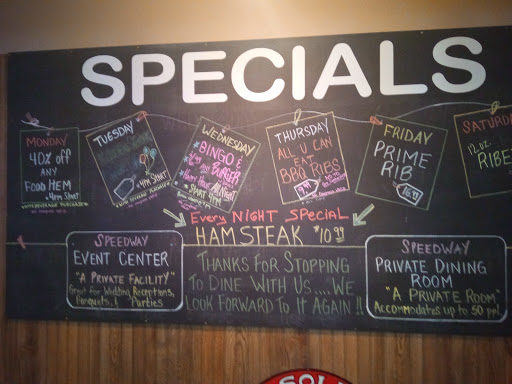 SPECIALS
MONDAY
40% off
ANY
FOOD ITEM
4PM START
W/ BEVERAGE PURCHASE
TUESDAY
4PM START
WEDNESDAY
BINGO &
BURGER
ALL NIGHT
START 4PM
THURSDAY
ALL U CAN
EAT
BBQ RIBS
FRIDAY
PRIME
RIB
SATURDA
12 oz.
RIBE
EVERY NIGHT SPECIAL
HAM STEAK $10.99
SPEEDWAY
EVENT CENTER
"A PRIVATE FACILITY"
Great for Wedding Receptions,
Banquets & Parties
THANKS FOR STOPPING
TO DINE WITH US....WE
LOOK FORWARD TO IT AGAIN!!
SPEEDWAY
PRIVATE DINING
ROOM
"A PRIVATE ROOM"
Accommodates up to 50 ppl.